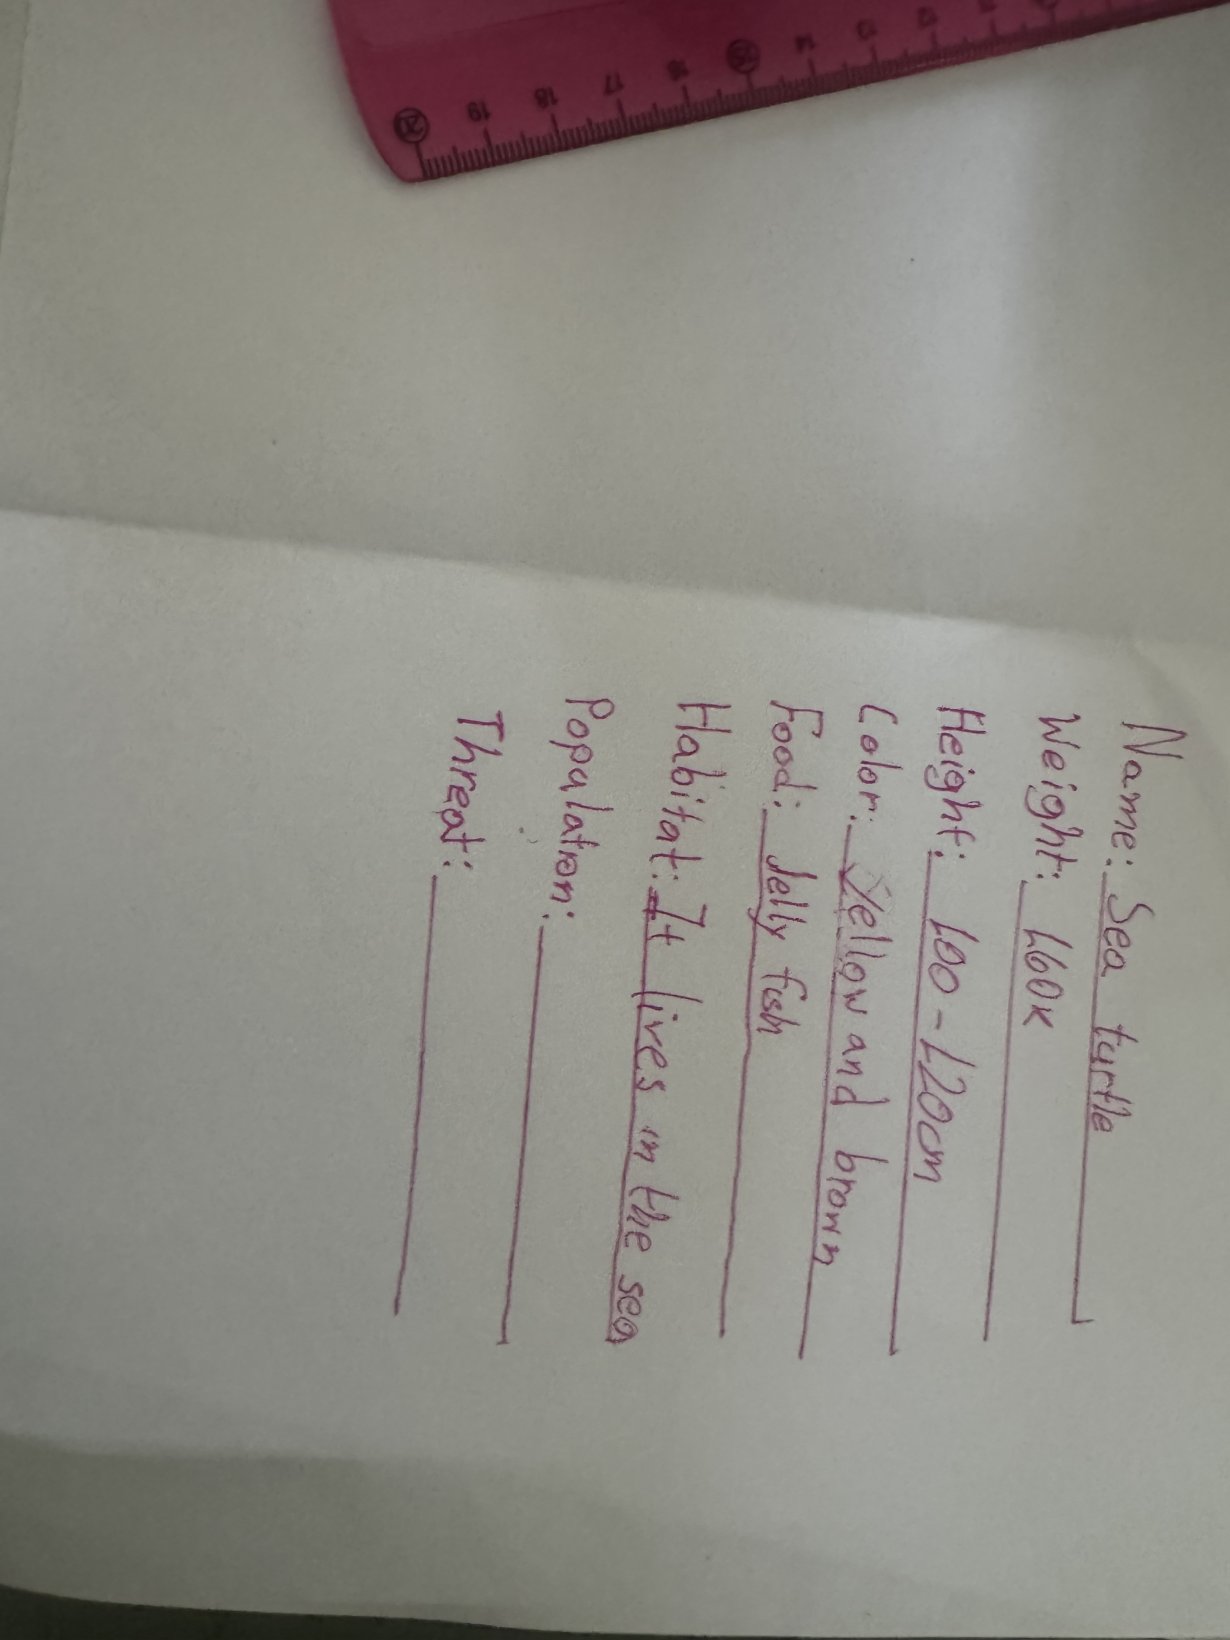 Name: Sea turtle
Weight: 160k
Height: 100-120cm
Color: Yellow and brown
Food: Jelly fish
Habitat: It lives in the sea
Population:
Threat:
20 19 18 17 16 15 14 13 12 11